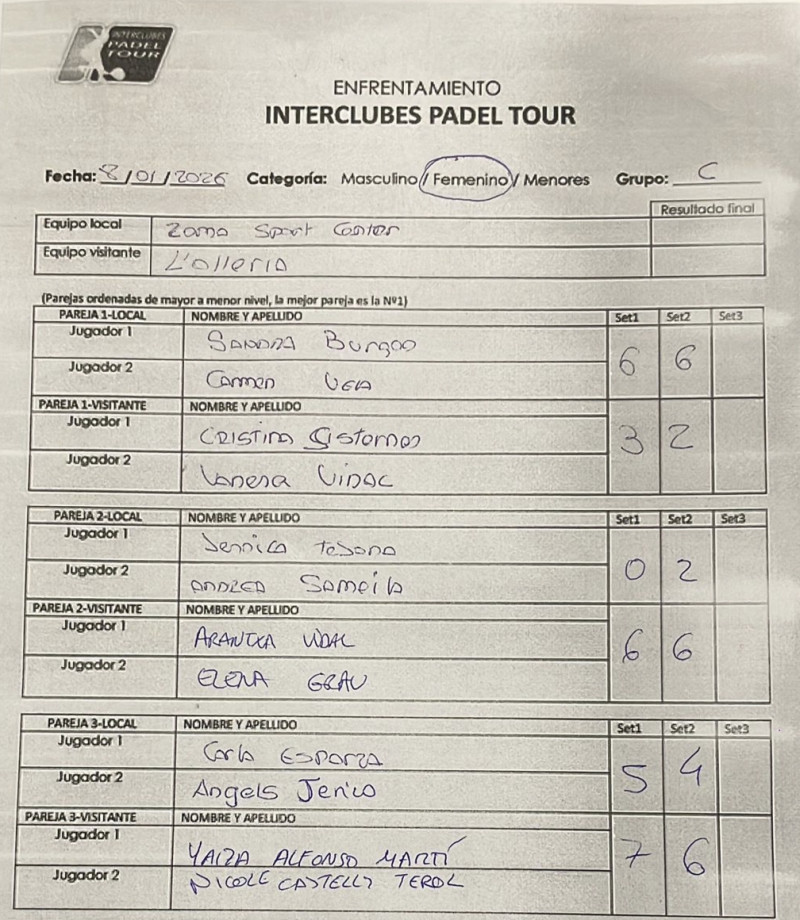 INTERCLUBES
PADEL
TOUR
ENFRENTAMIENTO
INTERCLUBES PADEL TOUR
Fecha: 8/01/2026 Categoría: Masculino / Femenino / Menores Grupo: C
Resultado final
Equipo local Zona Sport Center
Equipo visitante L'olleria
(Parejas ordenadas de mayor a menor nivel, la mejor pareja es la Nº1)
PAREJA 1-LOCAL NOMBRE Y APELLIDO Set1 Set2 Set3
Jugador 1 Sandra Burgos
6 6
Jugador 2 Carmen Vela
PAREJA 1-VISITANTE NOMBRE Y APELLIDO
Jugador 1 Cristina Sisternes
3 2
Jugador 2 Vanesa
PAREJA 2-LOCAL NOMBRE Y APELLIDO Set1 Set2 Set3
Jugador 1
0 2
Jugador 2 Andrea
PAREJA 2-VISITANTE NOMBRE Y APELLIDO
Jugador 1 ARANTXA VIDAL
6 6
Jugador 2 ELENA GRAU
PAREJA 3-LOCAL NOMBRE Y APELLIDO Set1 Set2 Set3
Jugador 1 Carla Esparza
5 4
Jugador 2 Angels Jerico
PAREJA 3-VISITANTE NOMBRE Y APELLIDO
Jugador 1 YAIZA ALFONSO MARTÍ
7 6
Jugador 2 NICOLE CASTELLS TEROL